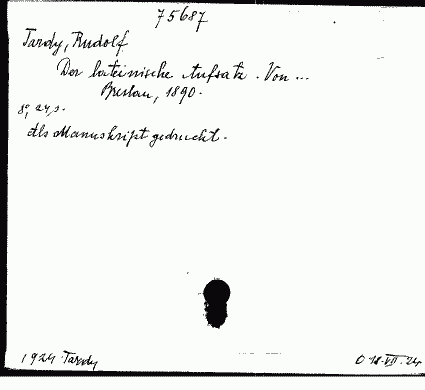 75687
Tardy, Rudolf
Der lateinische Aufsatz. Von ...
Breslau, 1890.
8°, 24, s.
Als Manuskript gedruckt.
1924 Tardy
O 18. VII. 24